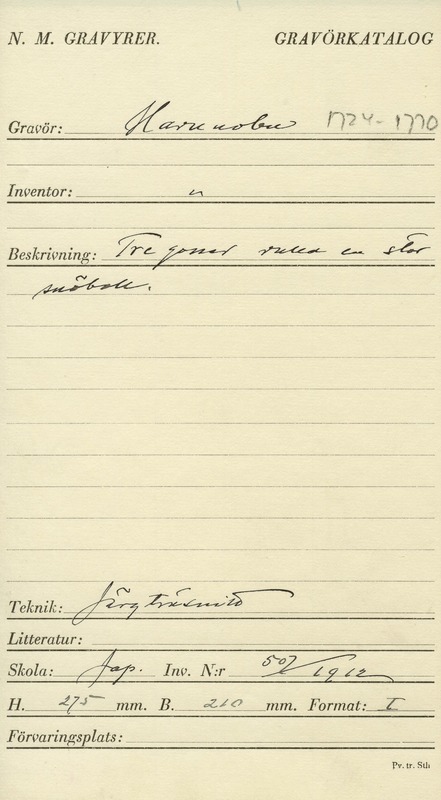 N. M. GRAVYRER. GRAVÖRKATALOG
Gravör: Harunobu 1724-1770
Inventor: "
Beskrivning: Tre gossar rulla en stor
snöboll.
Teknik: Färgträsnitt
Litteratur:
Skola: Jap. Inv. N:r 507/1912
H. 275 mm. B. 210 mm. Format: I
Förvaringsplats:
Pv. tr. Sth